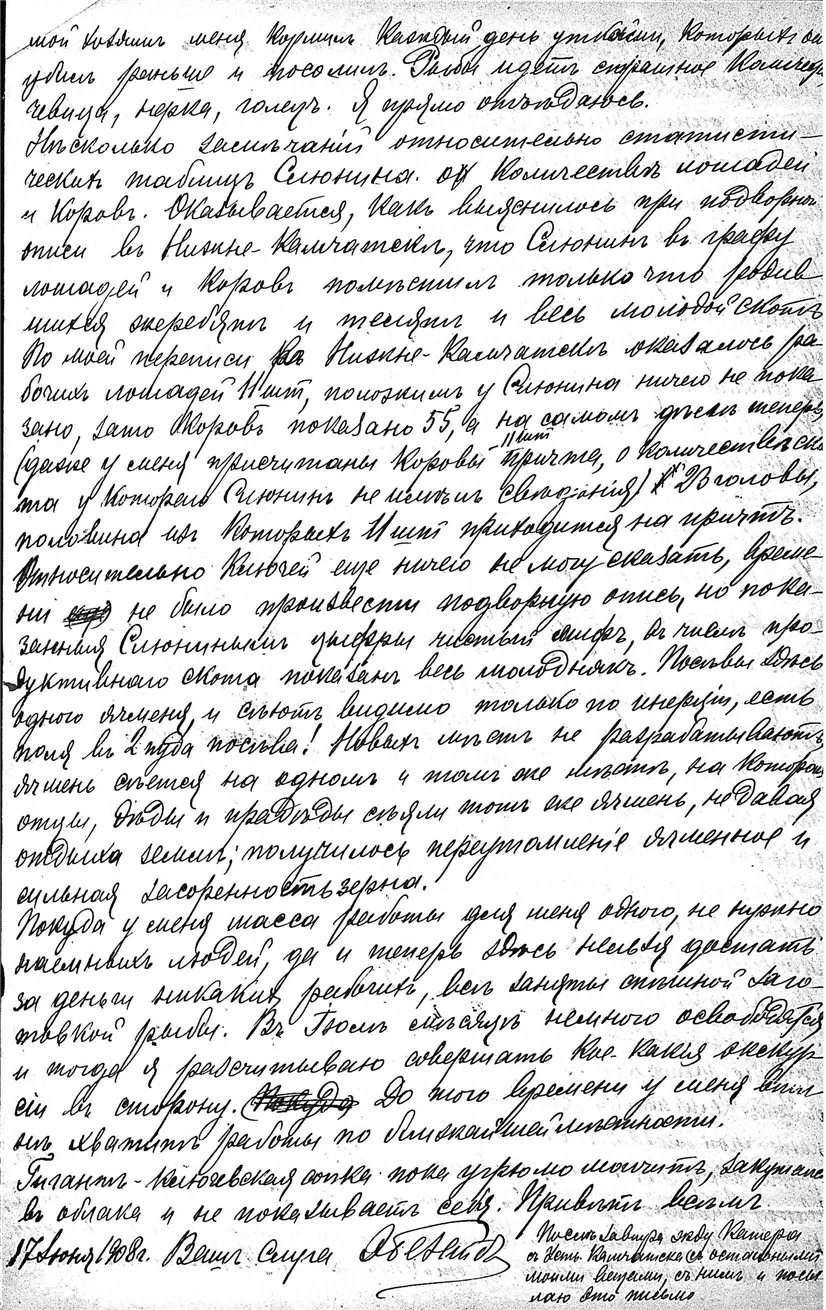 мой хозяинъ меня кормилъ каждый день утками, которыхъ он
убилъ раньше и посолилъ. Рыбы идетъ страшное количе
чевица, нерка, голецъ. Я прямо отъѣдаюсь.
Нѣсколько замѣчаній относительно статисти-
ческихъ таблицъ Слюнина. о количествѣ лошадей
и коровъ. Оказывается, какъ выяснилось при подворной
описи въ Нижне-Камчатскѣ, что Слюнинъ въ графу
лошадей и коровъ помѣстилъ только что родив
шихся жеребятъ и телятъ и весь молодой скотъ
По моей переписи въ Нижне-Камчатскѣ оказалось ра
бочихъ лошадей 11 шт, положимъ у Слюнина ничего не пока
зано, зато коровъ показано 55, а на самомъ дѣлѣ теперь
(даже у меня присчитаны коровы 11 шт причта, о количествѣ ско
та у котораго Слюнинъ не имѣлъ свѣдѣнія) 23 головы,
половина изъ которыхъ 11 шт приходится на причтъ.
Относительно Ключей еще ничего не могу сказать, време
ни не было произвести подворную опись, но пока-
занныя Слюнинымъ цыфры чистый мифъ, въ числѣ про-
дуктивнаго скота показанъ весь молоднякъ. Посѣвы здѣсь
одного ячменя, и сѣютъ видимо только по инерціи, есть
поля въ 2 пуда посѣва! Новыхъ мѣстъ не разрабатываютъ,
ячмень сѣется на одномъ и томъ же мѣстѣ, на которомъ
отцы, дѣды и прадѣды сѣяли тотъ же ячмень, не давая
отдыха землѣ; получилось переутомленіе ячменное и
сильная засоренность зерна.
Покуда у меня масса работы для меня одного, не нужно
наемныхъ людей, да и теперь здѣсь нельзя достать
за деньги никакихъ рабочихъ, всѣ заняты спѣшной заго-
товкой рыбы. Въ Іюлѣ мѣсяцѣ немного освободятся
и тогда я разсчитываю совершать кое какія экскур
сіи въ сторону. До того времени у меня впол
нѣ хватитъ работы по ближайшей мѣстности.
Гигантъ-Ключевская сопка пока угрюмо молчитъ, закутался
въ облака и не показываетъ себя. Привѣтъ всѣмъ
17 Іюня 1908 г. Вашъ слуга
Послѣ завтра жду катера
съ Усть Камчатска съ остальными
моими вещами, съ нимъ и посы
лаю это письмо